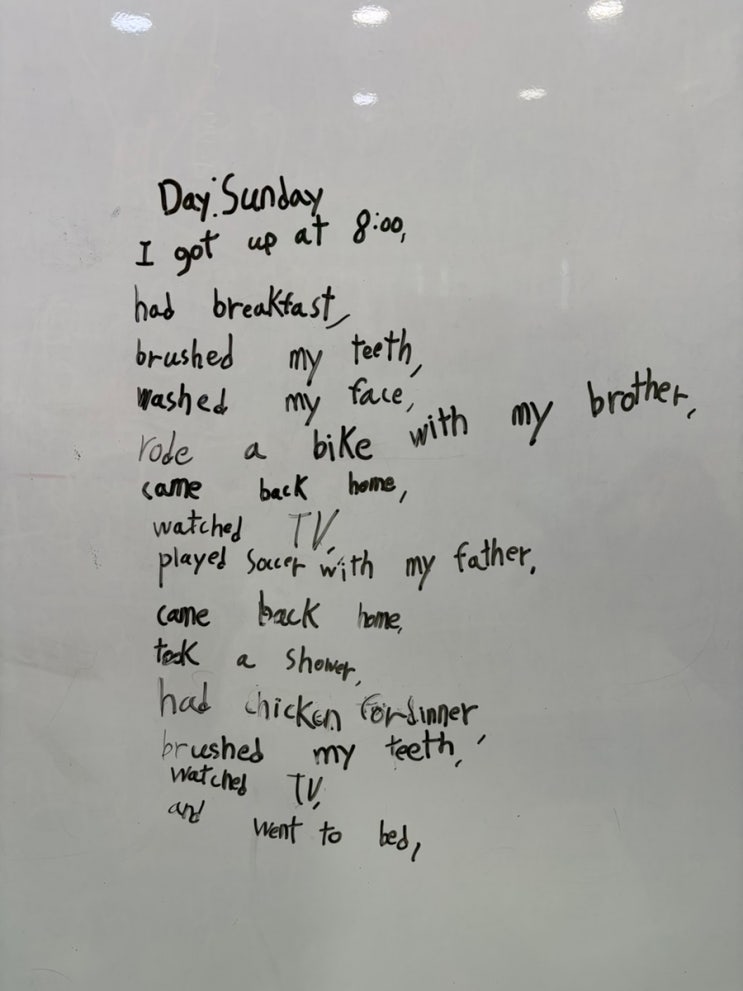 Day: Sunday
I got up at 8:00,
had breakfast,
brushed my teeth,
washed my face,
rode a bike with my brother,
came back home,
watched TV,
played soccer with my father,
came back home,
took a shower,
had chicken for dinner,
brushed my teeth,
watched TV,
and went to bed,